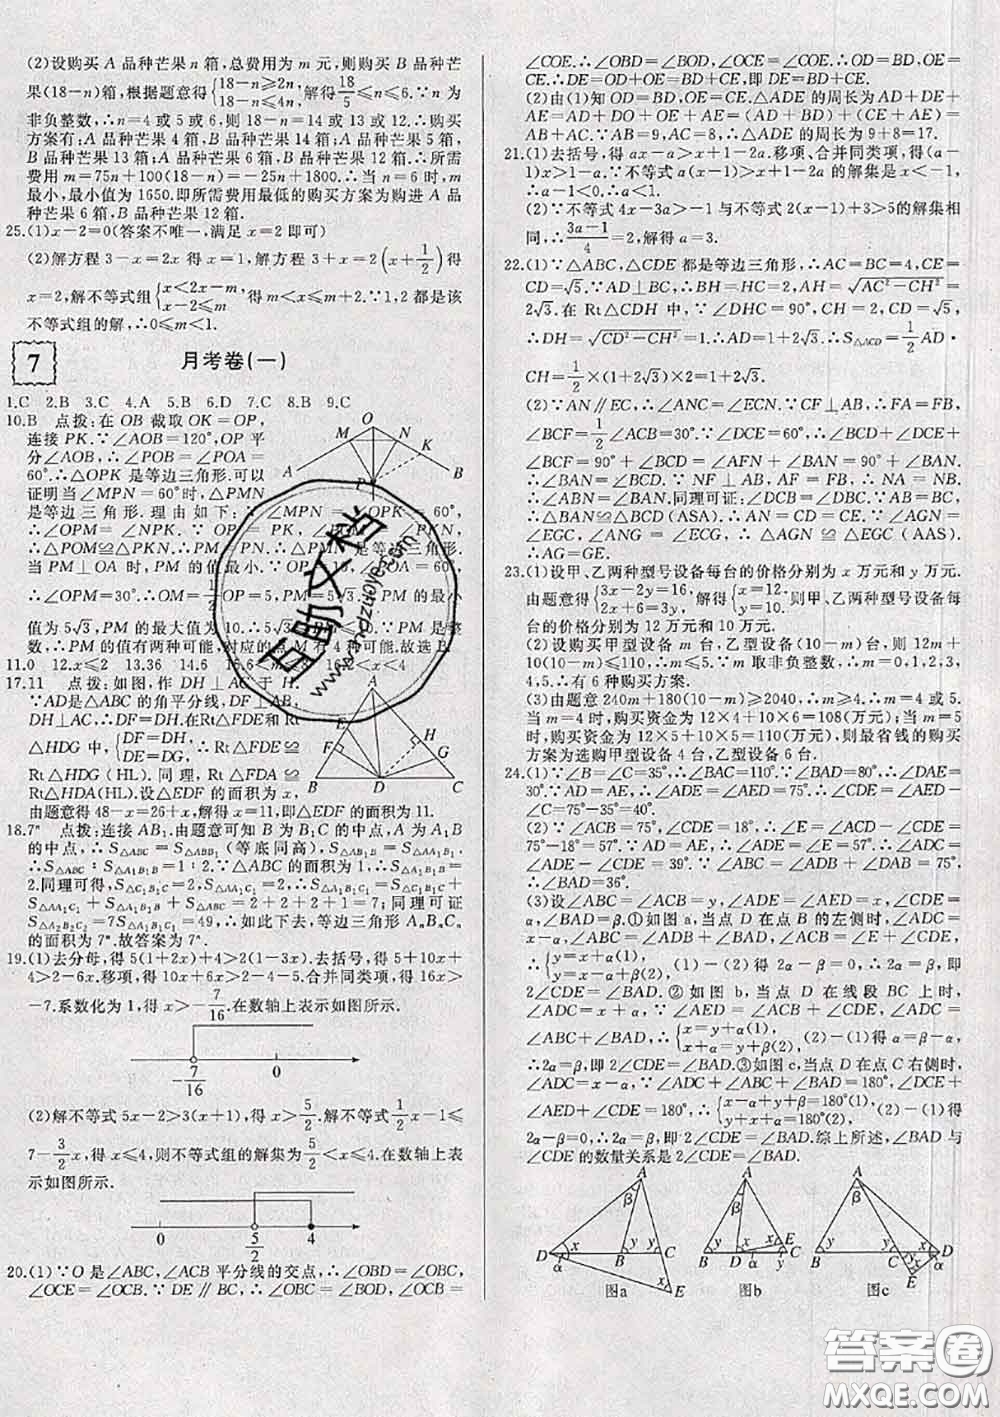 (2)设购买A品种芒果n箱,总费用为m元,则购买B品种芒
果(18-n)箱,根据题意得{18-n≥2n, 18-n≤4n, 解得18/5≤n≤6.∵n为
非负整数,∴n=4或5或6,则18-n=14或13或12.∴购买
方案有:A品种芒果4箱,B品种芒果14箱;A品种芒果5箱,
B品种芒果13箱;A品种芒果6箱,B品种芒果12箱.∴所需
费用m=75n+100(18-n)=-25n+1800.∴当n=6时,m
最小,最小值为1650.即所需费用最低的购买方案为购进A品
种芒果6箱,B品种芒果12箱.
25.(1)x-2=0(答案不唯一,满足x=2即可)
(2)解方程3-x=2x得x=1,解方程3+x=2(x+1/2)得
x=2,解不等式组{x<2x-m, x-2≤m, 得m<x≤m+2.∵1,2都是该
不等式组的解,∴0≤m<1.
7 月考卷(一)
1.C 2.B 3.C 4.A 5.B 6.D 7.C 8.B 9.C
10.B 点拨:在OB截取OK=OP,
连接PK.∵∠AOB=120°,OP平
分∠AOB,∴∠POB=∠POA=
60°.∴△OPK是等边三角形.可以
证明当∠MPN=60°时,△PMN
是等边三角形.理由如下:∵∠MPN=∠OPK=60°,
∴∠OPM=∠NPK.∵OP=PK,∠MOP=∠PKN,
∴△POM≌△PKN.∴PM=PN.∴△PMN是等边三角形.
当PM⊥OA时,PM的值最小.
∠OPM=30°.∴OM=1/2OP=5.∴PM的最小
值为5√3,PM的最大值为10.∴5√3≤PM
数,∴PM的值有两种可能,对应的点M有4种可能.故选B.
11.0 12.x≤2 13.36 14.16 15.6 16.
17.11 点拨:如图,作DH⊥AC于H.
∵AD是△ABC的角平分线,DF⊥AB,
DH⊥AC,∴DF=DH.在Rt△FDE和Rt
△HDG中,{DF=DH, DE=DG, ∴Rt△FDE≌
Rt△HDG(HL).同理,Rt△FDA≌
Rt△HDA(HL).设△EDF的面积为x,
由题意得48-x=26+x,解得x=11,即△EDF的面积为11.
18.7ⁿ 点拨:连接AB₁.由题意可知B为B₁C的中点,A为A₁B
的中点,∴S△ABC=S△ABB₁(等底同高),S△A₁AB₁=S△ABB₁.
∴S△ABC:S△A₁BB₁=1:2.∵△ABC的面积为1,∴S△A₁B₁B=
2.同理可得,S△C₁B₁C=2,S△AA₁C₁=2.∴S△A₁B₁C₁=S△C₁B₁C+
S△AA₁C₁+S△A₁B₁B+S△ABC=2+2+2+1=7;同理可证
S△A₂B₂C₂=7S△A₁B₁C₁=49,∴如此下去,等边三角形AₙBₙCₙ
的面积为7ⁿ.故答案为7ⁿ.
19.(1)去分母,得5(1+2x)+4>2(1-3x).去括号,得5+10x+
4>2-6x.移项,得10x+6x>2-4-5.合并同类项,得16x>
-7.系数化为1,得x>-7/16.在数轴上表示如图所示.
-7/16 0
(2)解不等式5x-2>3(x+1),得x>5/2.解不等式1/2x-1≤
7-3/2x,得x≤4,则不等式组的解集为5/2<x≤4.在数轴上表
示如图所示.
0 5/2 4
20.(1)∵O是∠ABC,∠ACB平分线的交点,∴∠OBD=∠OBC,
∠OCE=∠OCB.∵DE∥BC,∴∠BOD=∠OBC,∠OCB=
∠COE.∴∠OBD=∠BOD,∠OCE=∠COE.∴OD=BD,OE=
CE.∴DE=OD+OE=BD+CE,即DE=BD+CE.
(2)由(1)知OD=BD,OE=CE.△ADE的周长为AD+DE+
AE=AD+DO+OE+AE=(AD+BD)+(CE+AE)=
AB+AC.∵AB=9,AC=8,∴△ADE的周长为9+8=17.
21.(1)去括号,得ax-a>x+1-2a.移项、合并同类项,得(a-
1)x>1-a.∵不等式a(x-1)>x+1-2a的解集是x<-1,
∴a-1<0.∴a<1.
(2)∵不等式4x-3a>-1与不等式2(x-1)+3>5的解集相
同,∴(3a-1)/4=2,解得a=3.
22.(1)∵△ABC,△CDE都是等边三角形,∴AC=BC=4,CE=
CD=√5.∵AD⊥BC,∴BH=HC=2,AH=√(AC²-CH²)=
2√3.在Rt△CDH中,∵∠DHC=90°,CH=2,CD=√5,
∴DH=√(CD²-CH²)=1.∴AD=1+2√3.∴S△ACD=1/2AD·
CH=1/2×(1+2√3)×2=1+2√3.
(2)∵AN∥EC,∴∠ANC=∠ECN.∵CF⊥AB,∴FA=FB,
∠BCF=1/2∠ACB=30°.∵∠DCE=60°,∴∠BCD+∠DCE+
∠BCF=90°+∠BCD=∠AFN+∠BAN=90°+∠BAN.
∴∠BAN=∠BCD.∵NF⊥AB,AF=FB,∴NA=NB.
∴∠ABN=∠BAN.同理可证:∠BCD=∠DBC.∵AB=BC,
∴△BAN≌△BCD(ASA).∴AN=CD=CE.∵∠AGN=
∠EGC,∠ANG=∠ECG=90°,∴△AGN≌△EGC(AAS).
∴AG=GE.
23.(1)设甲、乙两种型号设备每台的价格分别为x万元和y万元.
由题意得{3x-2y=16, 2x+6=3y, 解得{x=12, y=10. 则甲、乙两种型号设备每
台的价格分别为12万元和10万元.
(2)设购买甲型设备m台,乙型设备(10-m)台,则12m+
10(10-m)≤110,∴m≤5.∵m取非负整数,∴m=0,1,2,3,
4,5.∴有6种购买方案.
(3)由题意240m+180(10-m)≥2040,∴m≥4.∴m=4或5.
当m=4时,购买资金为12×4+10×6=108(万元);当m=5
时,购买资金为12×5+10×5=110(万元),则最省钱的购买
方案为选购甲型设备4台,乙型设备6台.
24.(1)∵∠B=∠C=35°,∴∠BAC=110°.∵∠BAD=80°,∴∠DAE=
30°.∴∠ADE=∠AED=75°.∴∠CDE=∠AED-
∠C=75°-35°=40°.
(2)∵∠ACB=75°,∠CDE=18°,∴∠E=∠ACB-∠CDE=
75°-18°=57°.∵AD=AE,∴∠ADE=∠E=57°.∴∠ADC=
∠ADE-∠CDE=39°.∵∠BAD+∠ADB=∠ABC=75°,
∴∠BAD=36°.
(3)设∠ABC=∠ACB=y,∠ADE=∠AED=x,∠CDE=α,
∠BAD=β.①如图a,当点D在点B的左侧时,∠ADC=
x-α.∵∠ABC=∠ADB+∠BAD,∠ACB=∠E+∠CDE,
∴{y=x+α(1), y=x-α+β(2), (1)-(2)得2α-β=0,∴2α=β,即
2∠CDE=∠BAD.②如图b,当点D在线段BC上时,
∠ADC=x+α.∵∠AED=∠ACB+∠CDE,∠ADC=
∠ABC+∠BAD,∴{x=y+α(1), x+α=y+β(2), (2)-(1)得α=β-α,
∴2α=β,即2∠CDE=∠BAD.③如图c,当点D在点C右侧时,
∠ADC=x-α.∵∠ADC+∠ABC+∠BAD=180°,∠DCE+
∠AED+∠CDE=180°,∴{x-α+y+β=180°(1), y+x+α=180°(2) (2)-(1)得
2α-β=0,∴2α=β,即2∠CDE=∠BAD.综上所述,∠BAD与
∠CDE的数量关系是2∠CDE=∠BAD.
图a 图b 图c
互助文档
www.huzhuzuoye.com
答案圈
MXQE.COM